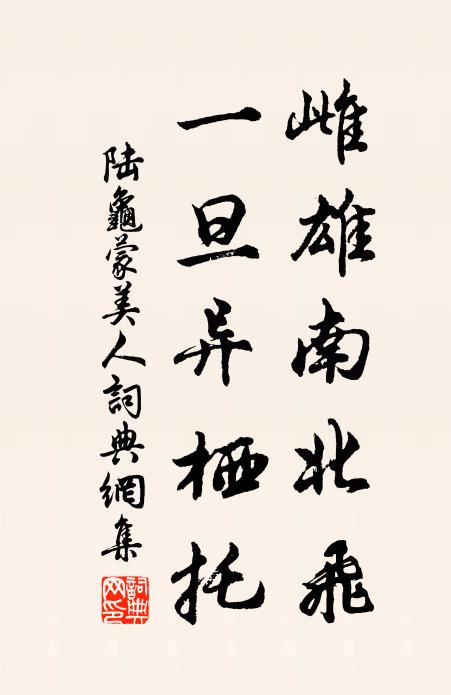 雌雄南北飛
一旦异栖托
陆龜蒙美人詞典網集
詞典网印